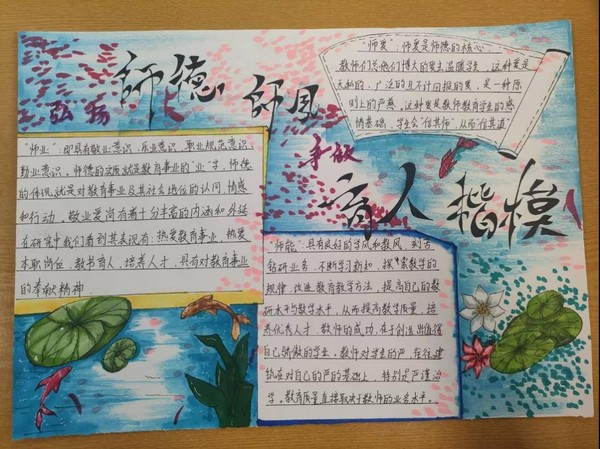 弘扬
師德師风
争做
育人楷模
"师爱":师爱是师德的核心。
教师们总他们博大的爱去温暖学生,这种爱是
无私的,广泛的且不计回报的爱,是一种原
则上的严慈,这种爱是教师教育学生的感
情基础,学生会"信其师",从而"信其道"
"师业":即具有敬业意识,乐业意识,职业规范意识,
勤业意识。师德的实质就是教育事业的"业"字。师德
的体现就是对教育事业及其社会地位的认同、情感
和行动。敬业爱岗有着十分丰富的内涵和外延
在研究中我们看到其表现有:热爱教育事业,热爱
本职岗位,教书育人,培养人才,具有对教育事业
的奉献精神
"师能":具有良好的学风和教风。刻苦
钻研业务,不断学习新知,探索教学的
规律,改进教育教学方法,提高自己的教
研水平与教学水平,从而提高教学质量,培
养优秀人才。教师的成功,在于创造出值得
自己骄傲的学生,教师对学生的严,在往建
轨在对自己的严的基础上,特别是严谨治
学。教育质量直接取决于教师的业务水平。